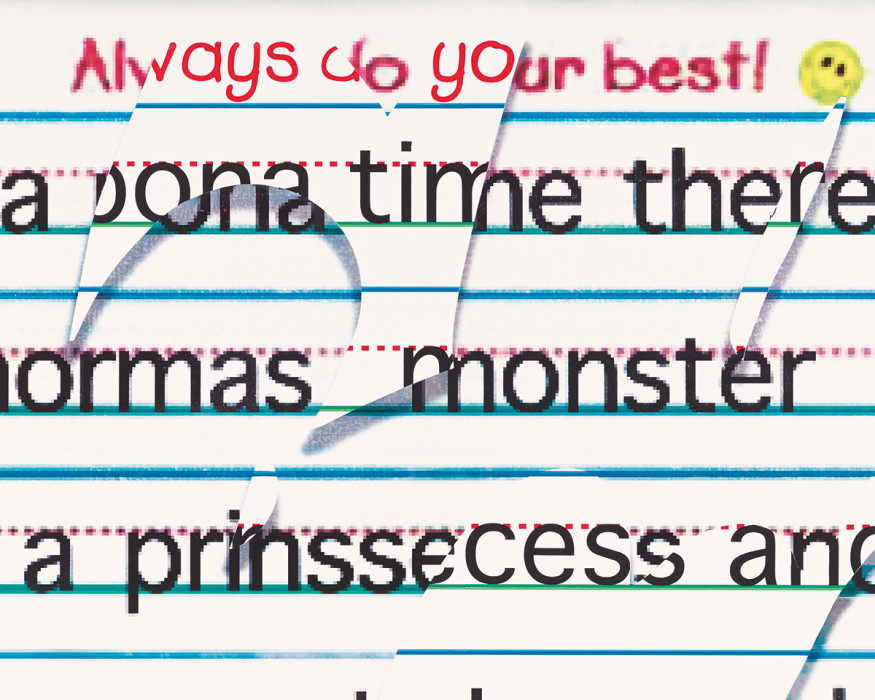 Always do your best!
a pona time there
normas monster
a prinssecess and